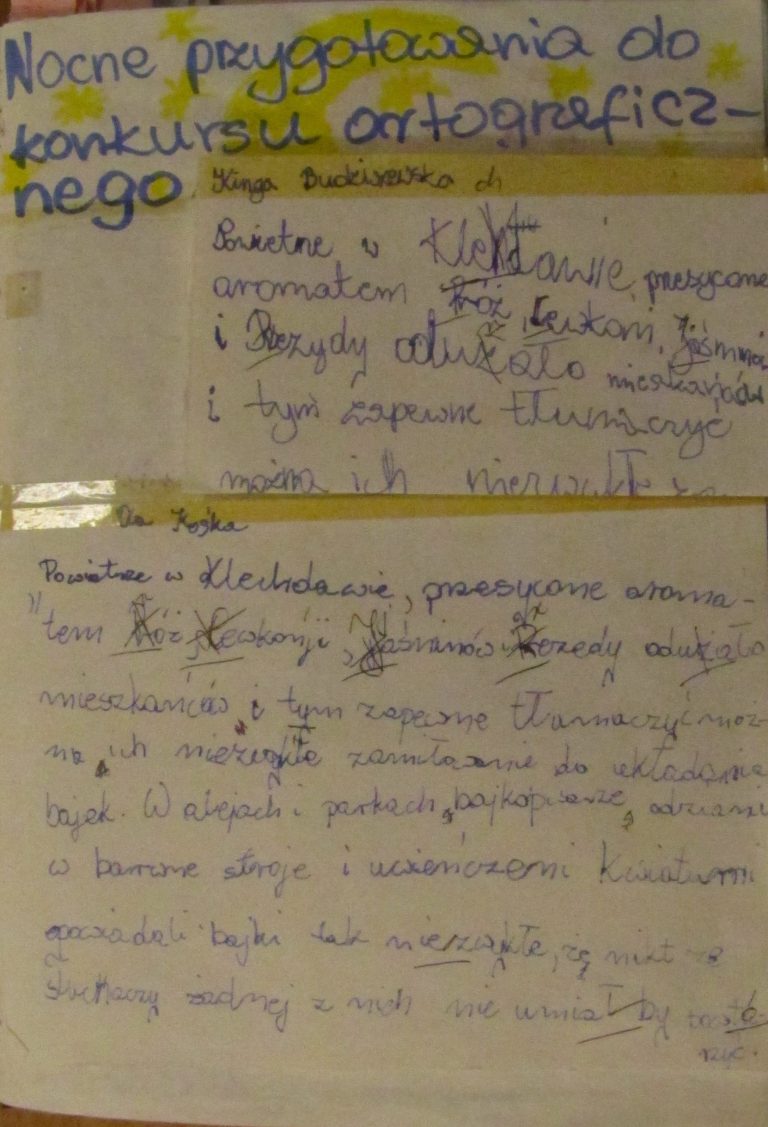 Nocne przygotowania do
konkursu ortograficz-
nego
Kinga ch
Powietrze w Klechdawie, przesycone
aromatem Róż, Lewkoni, Jaśminów
i Rezydy odużało mieszkańców
i tym zapewne tłumaczyć
można ich niezwykłe
Ola Kośka
Powietrze w Klechdawie, przesycone aroma-
tem Róż, Lewkonji, Jaśminów Rezedy odużało
mieszkańców i tym zapewne tłumaczyć moż-
na, ich niezwykłe zamiłowanie do układania
bajek. W alejach i parkach, bajkopisarze, odziani
w barwne stroje i uwieńczeni kwiatami
opowiadali bajki tak niezwykłe, że nikt ze
słuchaczy żadnej z nich nie umiał by powtó-
rzyć.